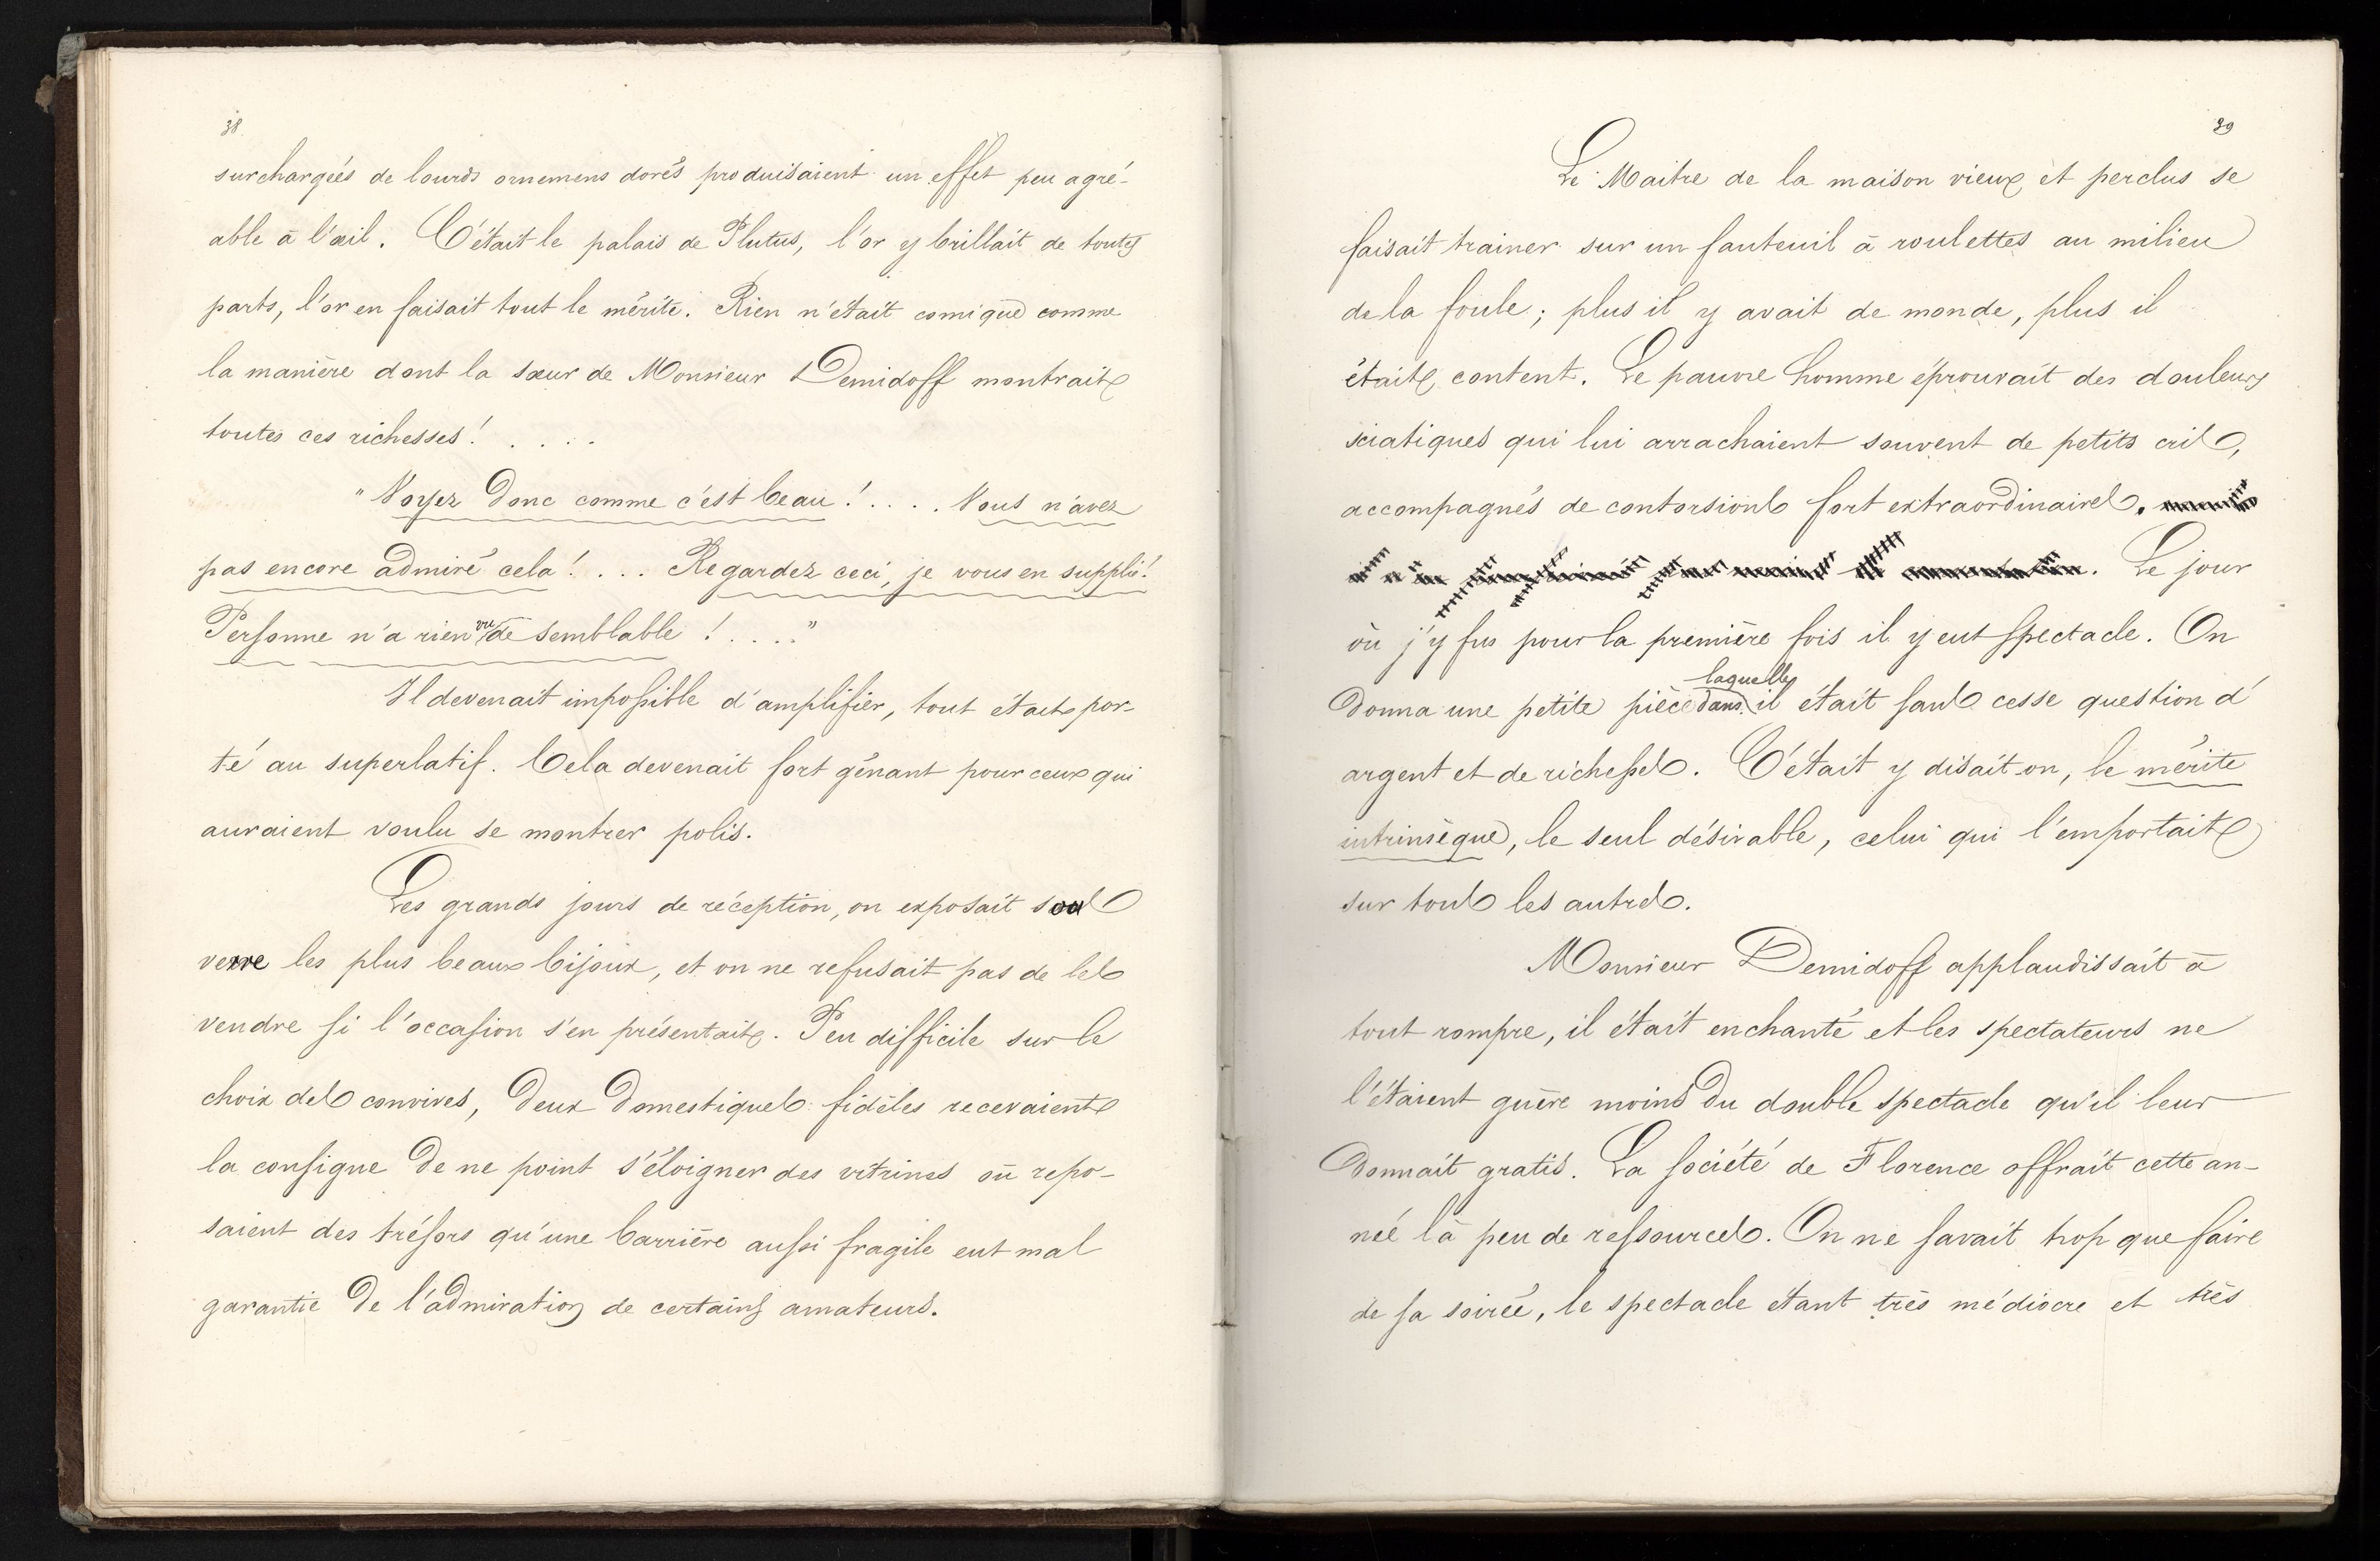 38
surchargées de lourds ornemens dorés produisaient un effet peu agré-
able à l'œil. C'était le palais de Plutus, l'or y brillait de toutes
parts, l'or en faisait tout le mérite. Rien n'était comique comme
la manière dont la sœur de Monsieur Demidoff montrait
toutes ces richesses! . . . .
"Voyez donc comme c'est beau! . . . . Vous n'avez
pas encore admiré cela! . . . Regardez ceci, je vous en supplie!
Personne n'a rien vu de semblable ! . . . ."
Il devenait impossible d'amplifier, tout était por-
té au superlatif. Cela devenait fort gênant pour ceux qui
auraient voulu se montrer polis.
Les grands jours de réception, on exposait sous
verre les plus beaux bijoux, et on ne refusait pas de les
vendre si l'occasion s'en présentait. Peu difficile sur le
choix des convives, deux domestiques fidèles recevaient
la consigne de ne point s'éloigner des vitrines où repo-
saient des trésors qu'une barrière aussi fragile eut mal
garantie de l'admiration de certains amateurs.
39
Le Maitre de la maison vieux et perclus se
faisait trainer sur un fauteuil à roulettes au milieu
de la foule; plus il y avait de monde, plus il
était content. Le pauvre homme éprouvait des douleurs
sciatiques qui lui arrachaient souvent de petits cris,
accompagnés de contorsions fort extraordinaires.
Le jour
où j'y fus pour la première fois il y eut spectacle. On
laquelle
donna une petite pièce dans il était sans cesse question d'
argent et de richesses. C'était y disait-on, le mérite
intrinsèque, le seul désirable, celui qui l'emportait
sur tous les autres.
Monsieur Demidoff applaudissait à
tout rompre, il était enchanté et les spectateurs ne
l'étaient guère moins du double spectacle qu'il leur
donnait gratis. La société de Florence offrait cette an-
née là peu de ressources. On ne savait trop que faire
de sa soirée, le spectacle étant très médiocre et très